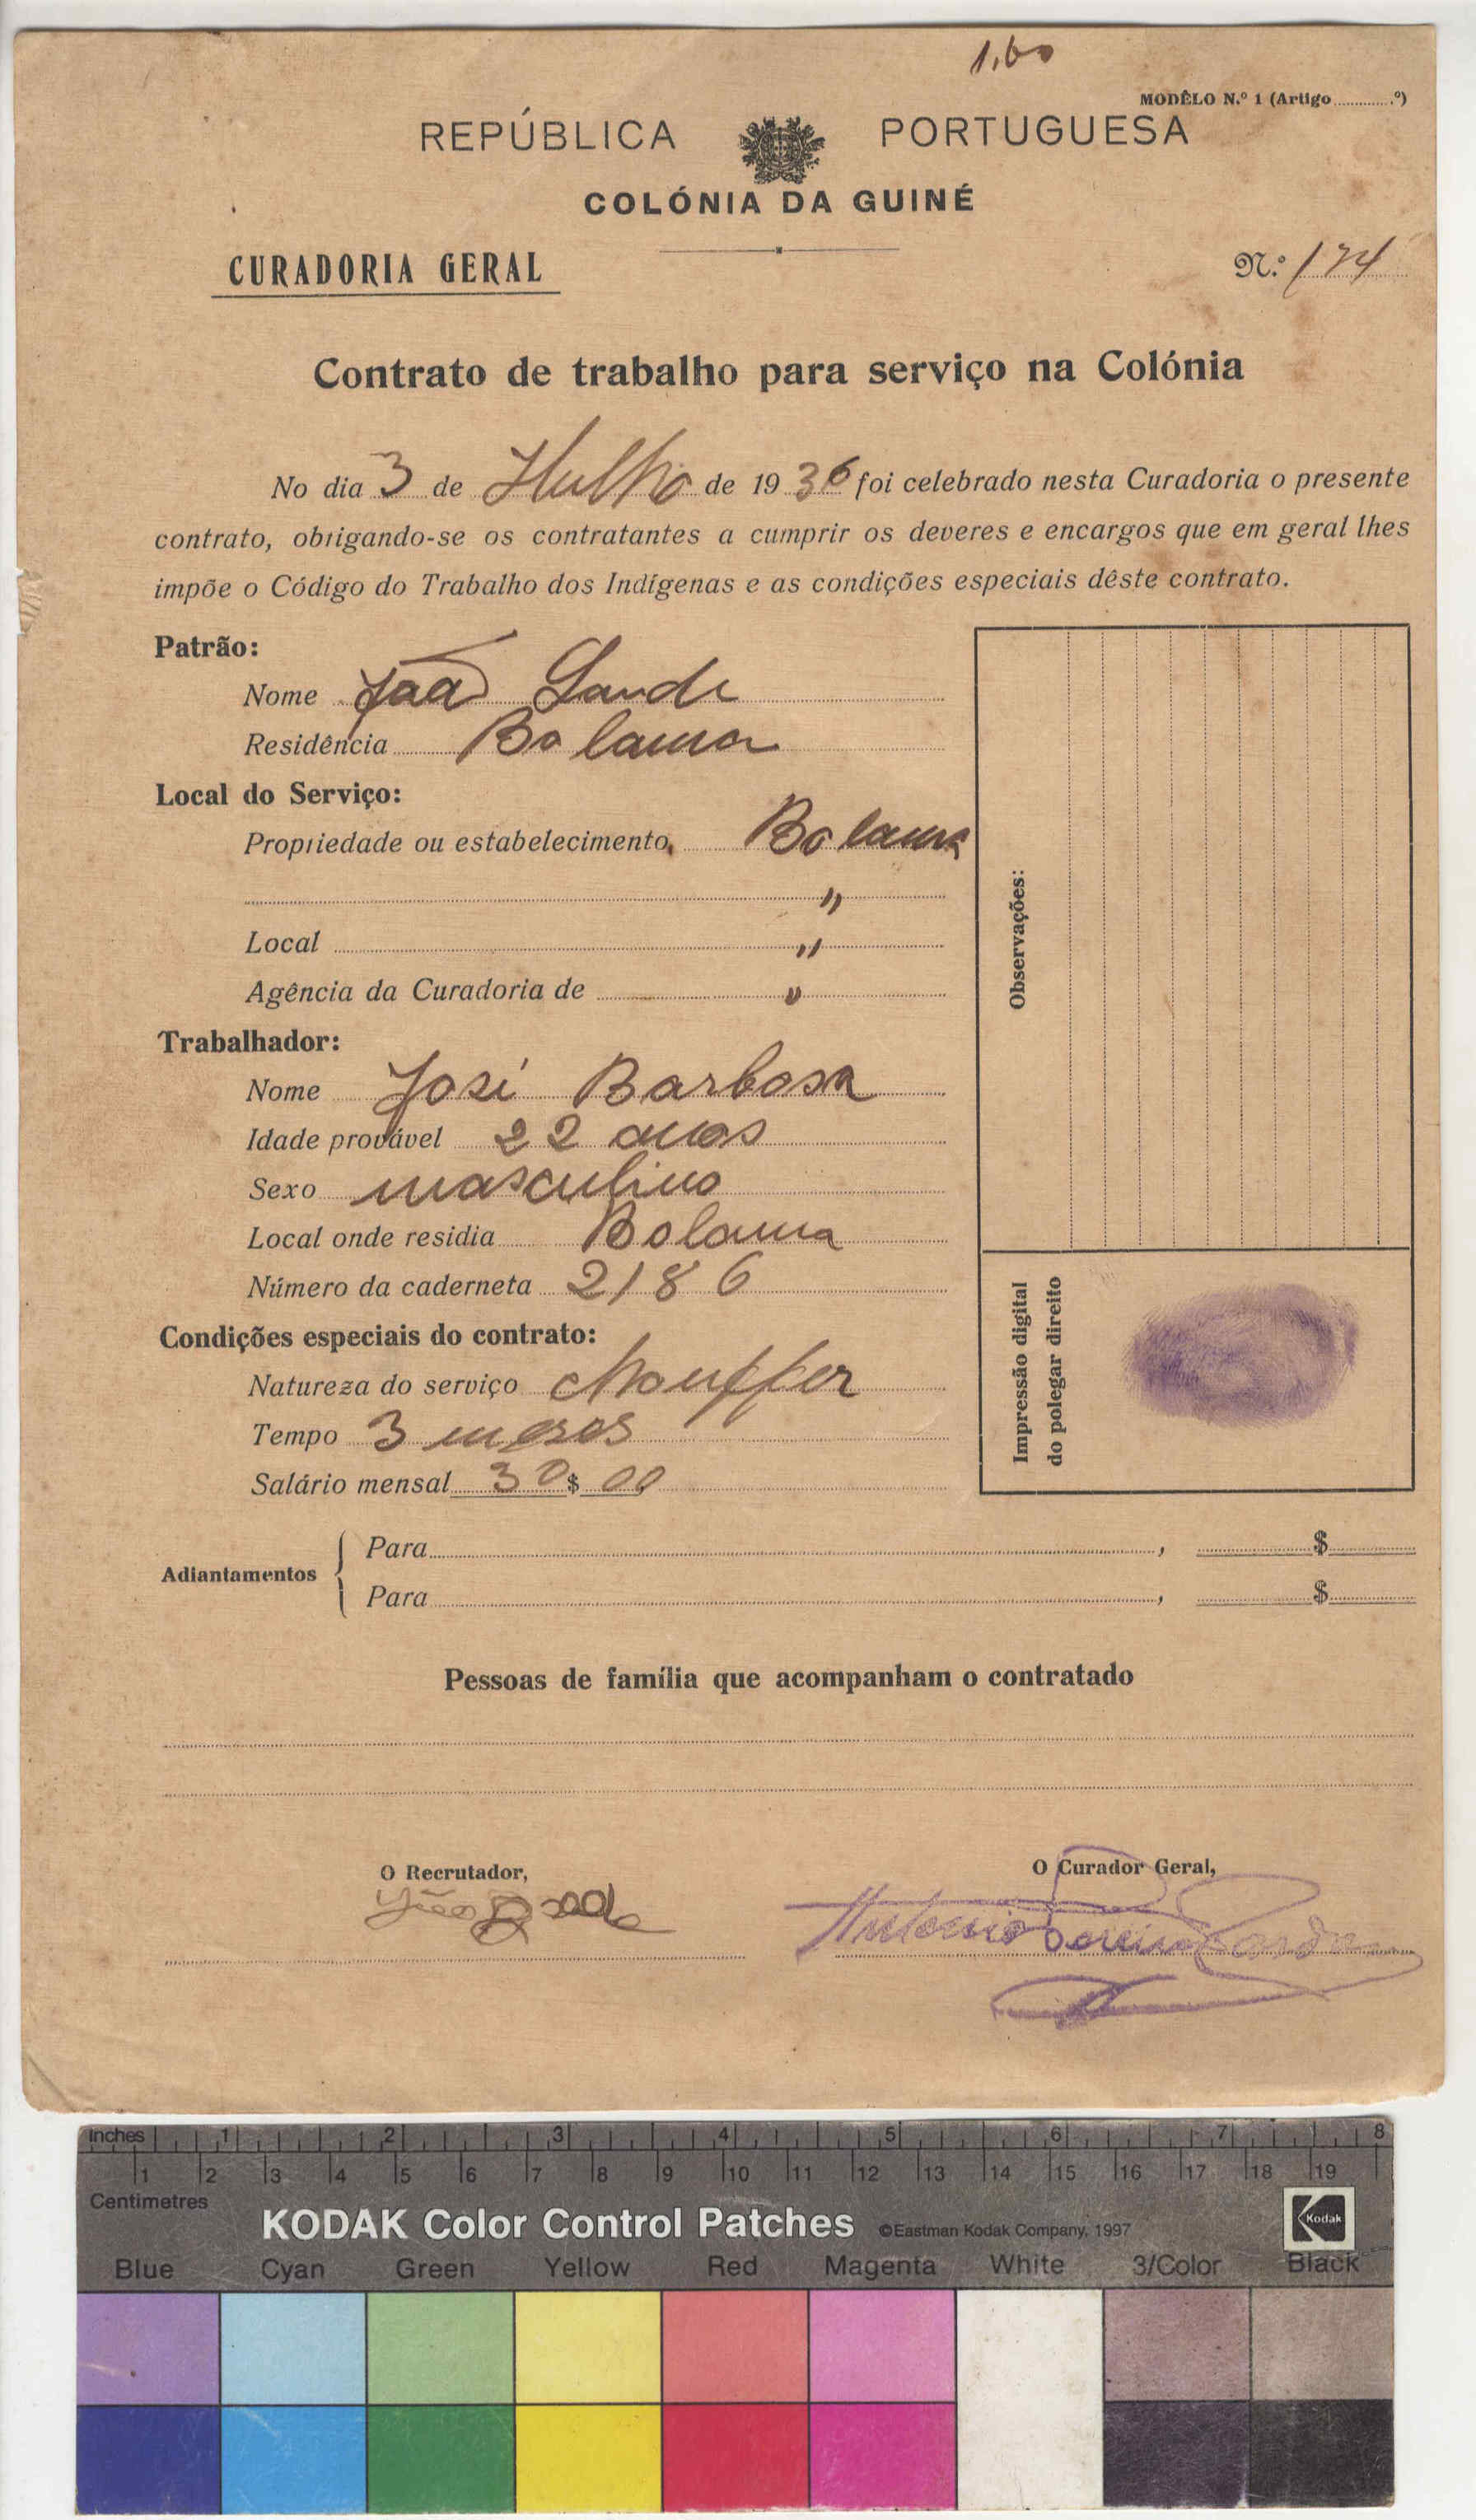 1,60
MODÊLO N.º 1 (Artigo ..............º)
REPÚBLICA PORTUGUESA
COLÓNIA DA GUINÉ
CURADORIA GERAL
N.º 174
Contrato de trabalho para serviço na Colónia
No dia 3 de Julho de 1936 foi celebrado nesta Curadoria o presente
contrato, obrigando-se os contratantes a cumprir os deveres e encargos que em geral lhes
impõe o Código do Trabalho dos Indígenas e as condições especiais dêste contrato.
Patrão:
Nome João
Residência Bolama
Local do Serviço:
Propriedade ou estabelecimento, Bolama
"
Local "
Agência da Curadoria de "
Trabalhador:
Nome José Barbosa
Idade provável 22 anos
Sexo masculino
Local onde residia Bolama
Número da caderneta 2186
Condições especiais do contrato:
Natureza do serviço chauffer
Tempo 3 meses
Salário mensal 30$00
Observações:
Impressão digital
do polegar direito
Adiantamentos
Para , $
Para , $
Pessoas de família que acompanham o contratado
O Recrutador,
João
O Curador Geral,
Antonio Pereira Cardoso
inches 1 2 3 4 5 6 7 8
1 2 3 4 5 6 7 8 9 10 11 12 13 14 15 16 17 18 19
Centimetres
KODAK Color Control Patches ©Eastman Kodak Company, 1997 Kodak
Blue Cyan Green Yellow Red Magenta White 3/Color Black